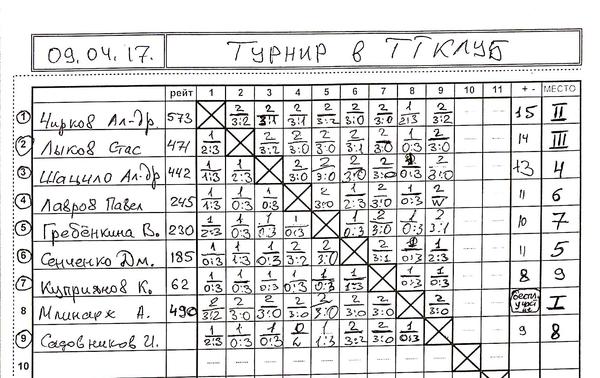 09.04.17. ТУРНИР в ТТКЛУБ
рейт 1 2 3 4 5 6 7 8 9 10 11 + - МЕСТО
1 Чирков Ал-др. 573 2 3:2 2 3:1 2 3:1 2 3:2 2 3:0 2 3:0 1 2:3 2 3:0 15 II
2 Лыков Стас 471 1 2:3 2 3:2 2 3:0 2 3:0 2 3:1 2 3:0 1 0:3 2 3:0 14 III
3 Шацило Ал-др 442 1 1:3 1 2:3 2 3:0 2 3:0 2 3:0 2 3:0 0:3 2 3:0 13 4
4 Лавров Павел 245 1 1:3 1 0:3 1 0:3 2 3:0 1 2:3 2 3:0 1 0:3 2 W 11 6
5 Гребёнкина В. 230 1 2:3 1 0:3 1 0:3 1 0:3 1 0:3 2 3:0 1 0:3 2 3:1 10 7
6 Сенченко Дм. 185 1 0:3 1 1:3 1 0:3 2 3:2 2 3:0 2 3:1 0:3 1 2:3 11 5
7 Куприянов К. 62 1 0:3 1 0:3 1 0:3 1 0:3 1 0:3 1 1:3 1 0:3 1 0:3 8 9
8 Млинарж А. 490 2 3:2 2 3:0 2 3:0 2 3:0 2 3:0 2 3:0 2 3:0 2 3:0 I
9 Садовников И. 1 2:3 1 0:3 1 0:3 0 L 1 1:3 2 3:2 2 3:0 1 0:3 9 8
10